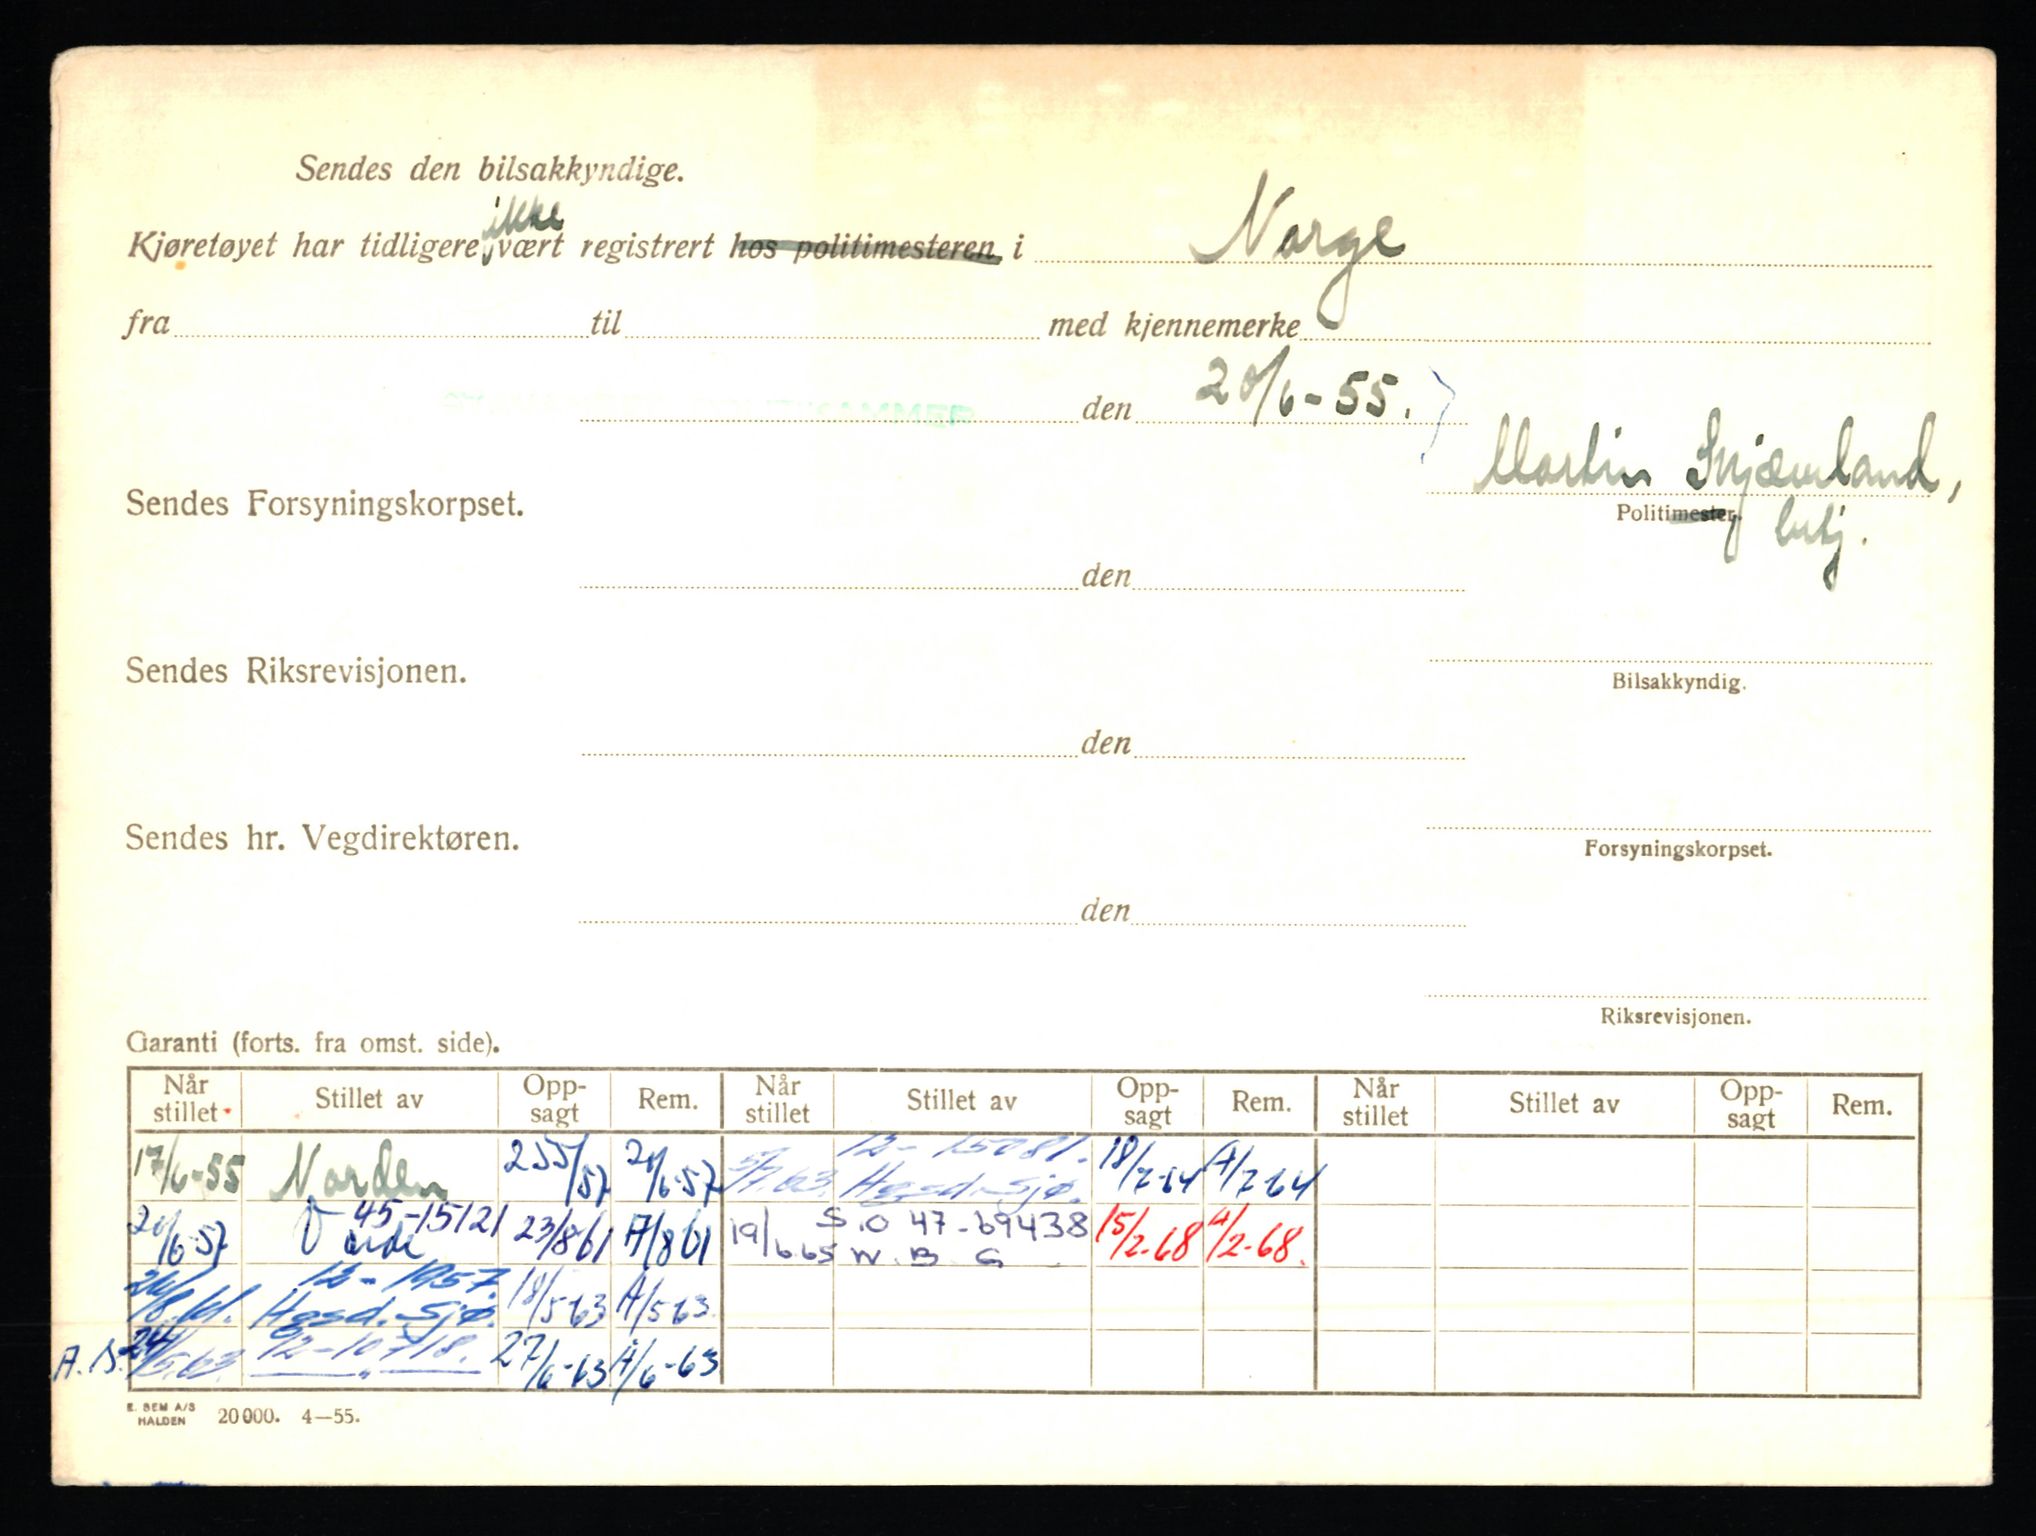 Sendes den bilsakkyndige.
Kjøretøyet har tidligere ikke vært registrert hos politimesteren i Norge
fra til med kjennemerke
den 20/6-55.
Martin Skjæveland,
Sendes Forsyningskorpset.
Politimester.
den
Sendes Riksrevisjonen.
Bilsakkyndig.
den
Sendes hr. Vegdirektøren.
Forsyningskorpset.
den
Riksrevisjonen.
Garanti (forts. fra omst. side).
Når stillet Stillet av Opp-sagt Rem. Når stillet Stillet av Opp-sagt Rem. Når stillet Stillet av Opp-sagt Rem.
17/6-55 Norden 255/57 20/6-57 5/7.63. 12-15081. Hesd.-Sjø. 18/7-64 A/7-64
20/6-57 45-15121 Varde 23/8-61 A/8-61 19/6.65 S.O 47-69438 W.B.G 15/2-68 A/2-68.
/8.61. 12-1957. Hesd.-Sjø. 18/5-63 A/5-63.
24/5.63. 12-10718. —„— 27/6-63 A/6-63
E. SEM A/S
HALDEN 20000. 4—55.